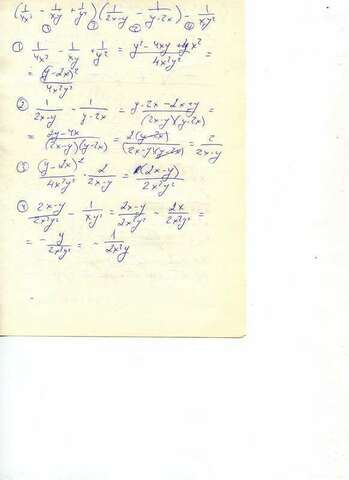 (1/4x² - 1/xy + 1/y²)(1/2x-y - 1/y-2x) - 1/xy²
① 1/4x² - 1/xy + 1/y² = y² - 4xy + 4x² / 4x²y² =
= (y-2x)² / 4x²y²
② 1/2x-y - 1/y-2x = y-2x-2x+y / (2x-y)(y-2x) =
= 2y-4x / (2x-y)(y-2x) = 2(y-2x) / (2x-y)(y-2x) = 2/2x-y
③ (y-2x)² / 4x²y² · 2/2x-y = (2x-y) / 2x²y²
④ 2x-y / 2x²y² - 1/xy² = 2x-y / 2x²y² - 2x / 2x²y² =
= - y / 2x²y² = - 1 / 2x²y